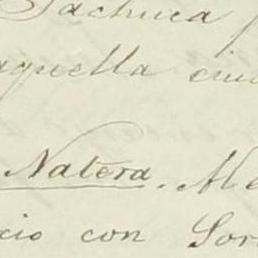 Pachuca
aquella ciu
Natera. Me
cio con Sor